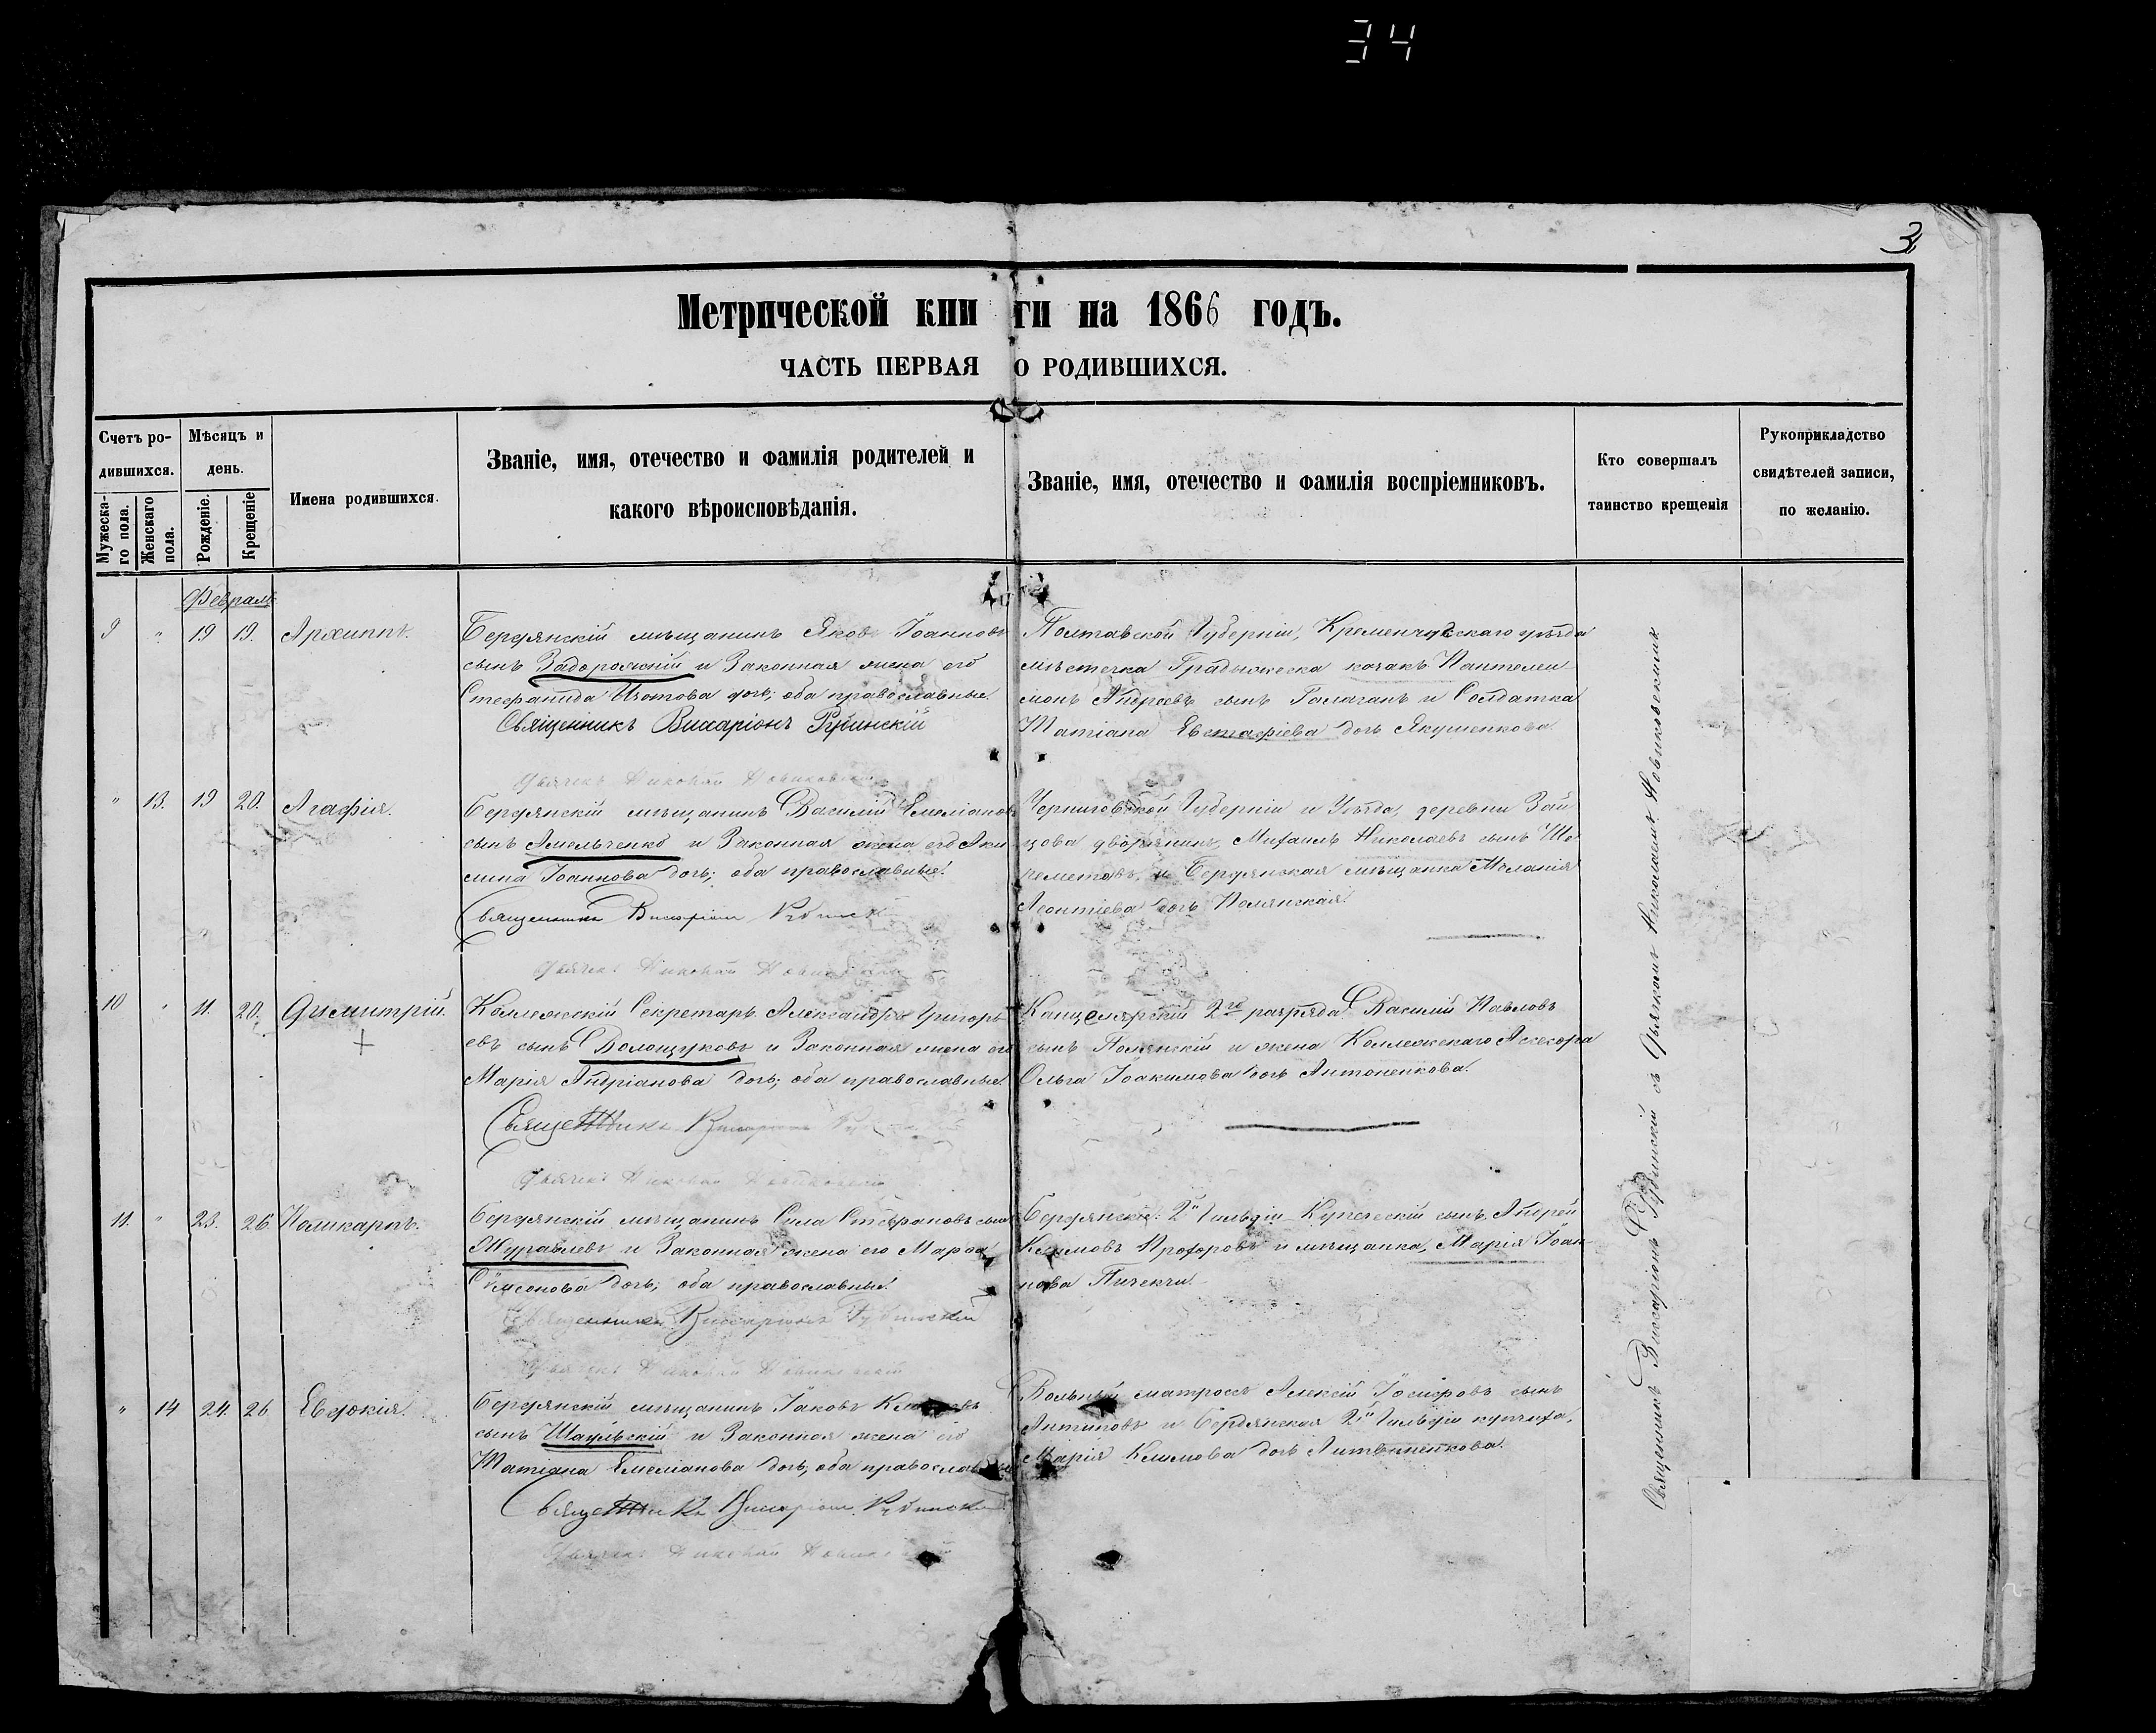 34
3
Метрической книги на 1866 годъ.
ЧАСТЬ ПЕРВАЯ О РОДИВШИХСЯ.
Счетъ ро-
дившихся.
Мужеска-
го пола.
Женскаго
пола.
Мѣсяцъ и
день.
Рожденіе.
Крещеніе
Имена родившихся.
Званіе, имя, отечество и фамилія родителей и
какого вѣроисповѣданія.
Званіе, имя, отечество и фамилія воспріемниковъ.
Кто совершалъ
таинство крещенія
Рукоприкладство
свидѣтелей записи,
по желанію.
Февраль
9 " 19 19. Архиппъ.
Бердянскій мѣщанинъ Яковъ Іоанновъ
сынъ Задорожскій и Законная жена его
Стефанида Изотова дочь; оба православные.
Священникъ Виссаріонъ Рудинскій
Дьячекъ Николай Новиковскій
Полтавской Губерніи, Кременчугскаго уѣзда
мѣстечка Градижска козакъ Пантелеи-
монъ Андреевъ сынъ Галаганъ и Солдатка
Татіана Евстафіева дочь Якушенкова.
" 13. 19 20. Агафія.
Бердянскій мѣщанинъ Василій Емеліановъ
сынъ Амельченко и Законная жена его Аки
лина Іоаннова дочь; оба православные.
Священникъ Виссаріонъ Рудинскій
Дьячекъ Николай Новиковскій
Черниговской Губерніи и Уѣзда, деревни Зай
цова дворянинъ, Михаилъ Николаевъ сынъ Ше-
реметовъ, и Бердянская мѣщанка Меланія
Леонтіева дочь Полянская.
10 " 11. 20. Димитрій.
Коллежскій Секретарь Александръ Григорь-
евъ сынъ Волощуковъ и Законная жена его
Марія Андріанова дочь; оба православные.
Священникъ Виссаріонъ
Дьячекъ Николай Новиковскій
Канцелярскій 2го разряда Василій Павловъ
сынъ Полянскій и жена Коллежскаго Ассесора
Ольга Іоакимова дочь Антоненкова.
11. " 23. 26 Поликарпъ.
Бердянскій мѣщанинъ Сила Стефановъ сынъ
Журавлевъ и Законная жена его Марфа
Симеонова дочь; оба православные.
Священникъ Виссаріонъ Рудинскій
Дьячекъ Николай Новиковскій
Бердянскій 2й Гильдіи Купеческій сынъ, Андрей
Климовъ Прохоровъ и мѣщанка, Марія Іоан-
нова
" 14 24. 26 Евдокія.
Бердянскій мѣщанинъ Іаковъ
сынъ Шаульскій и Законная жена его
Татіана Емеліанова дочь, оба православные
Священникъ Виссаріонъ Рудинскій
Дьячекъ Николай Новиковскій
Вольный матросъ Алексій Іосифовъ сынъ
Антиповъ и Бердянская 2й Гильдіи купчиха,
Марія Климова дочь Литвиненкова.
Священникъ Виссаріонъ Рудинскій съ Дьячкомъ Николаемъ Новиковскимъ